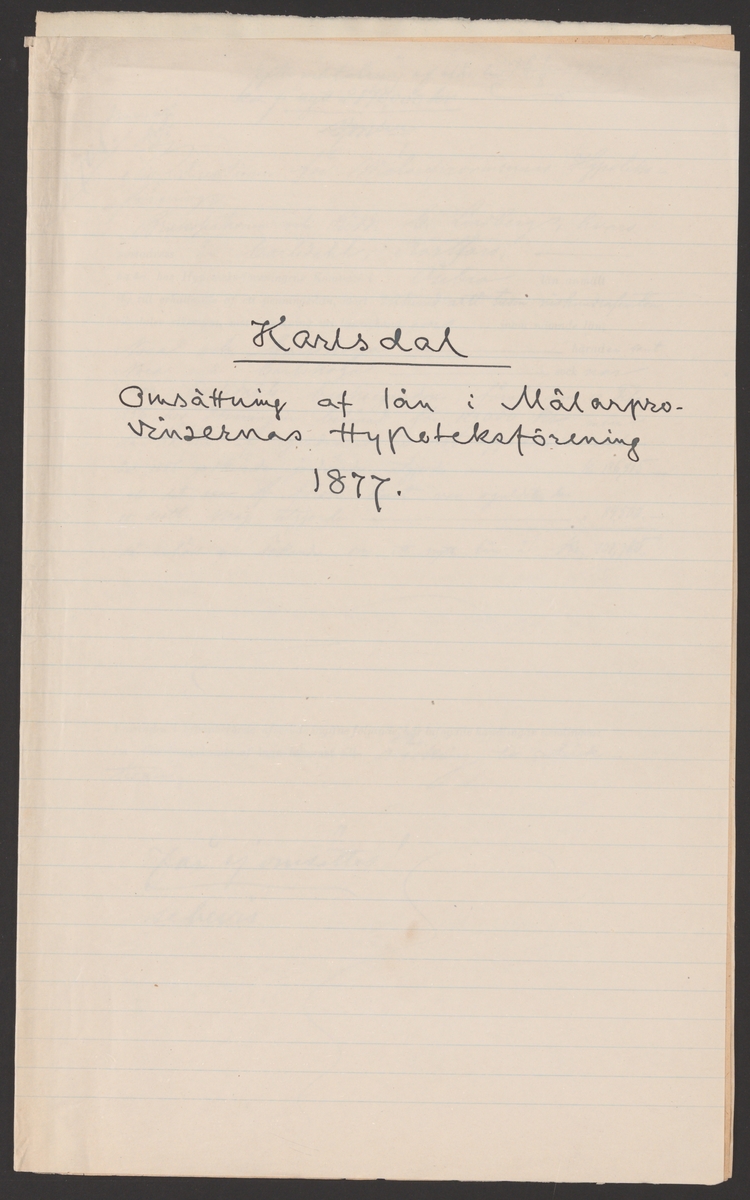 Karlsdal
Omsättning af lån i Mälarpro-
vinsernas Hypoteksförening
1877.